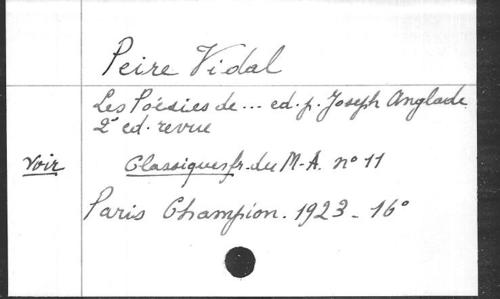 Peire Vidal
Les Poésies de... ed. p. Joseph Anglade
2e ed. revue
voir Classiques fr. du M-A. n° 11
Paris Champion. 1923 - 16°